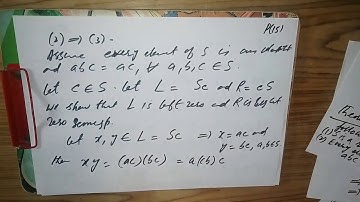 P(15)
(2) => (3) -
Assume every element of S is an idempotent
and abc = ac, ∀ a, b, c ∈ S.
Let c ∈ S. Let L = Sc and R = cS
We show that L is left zero and R is right
zero semigp.
Let x, y ∈ L = Sc => x = ac and
y = bc, a, b ∈ S.
then xy = (ac)(bc) = a(cb)c
Theo
(1)
(2) Every